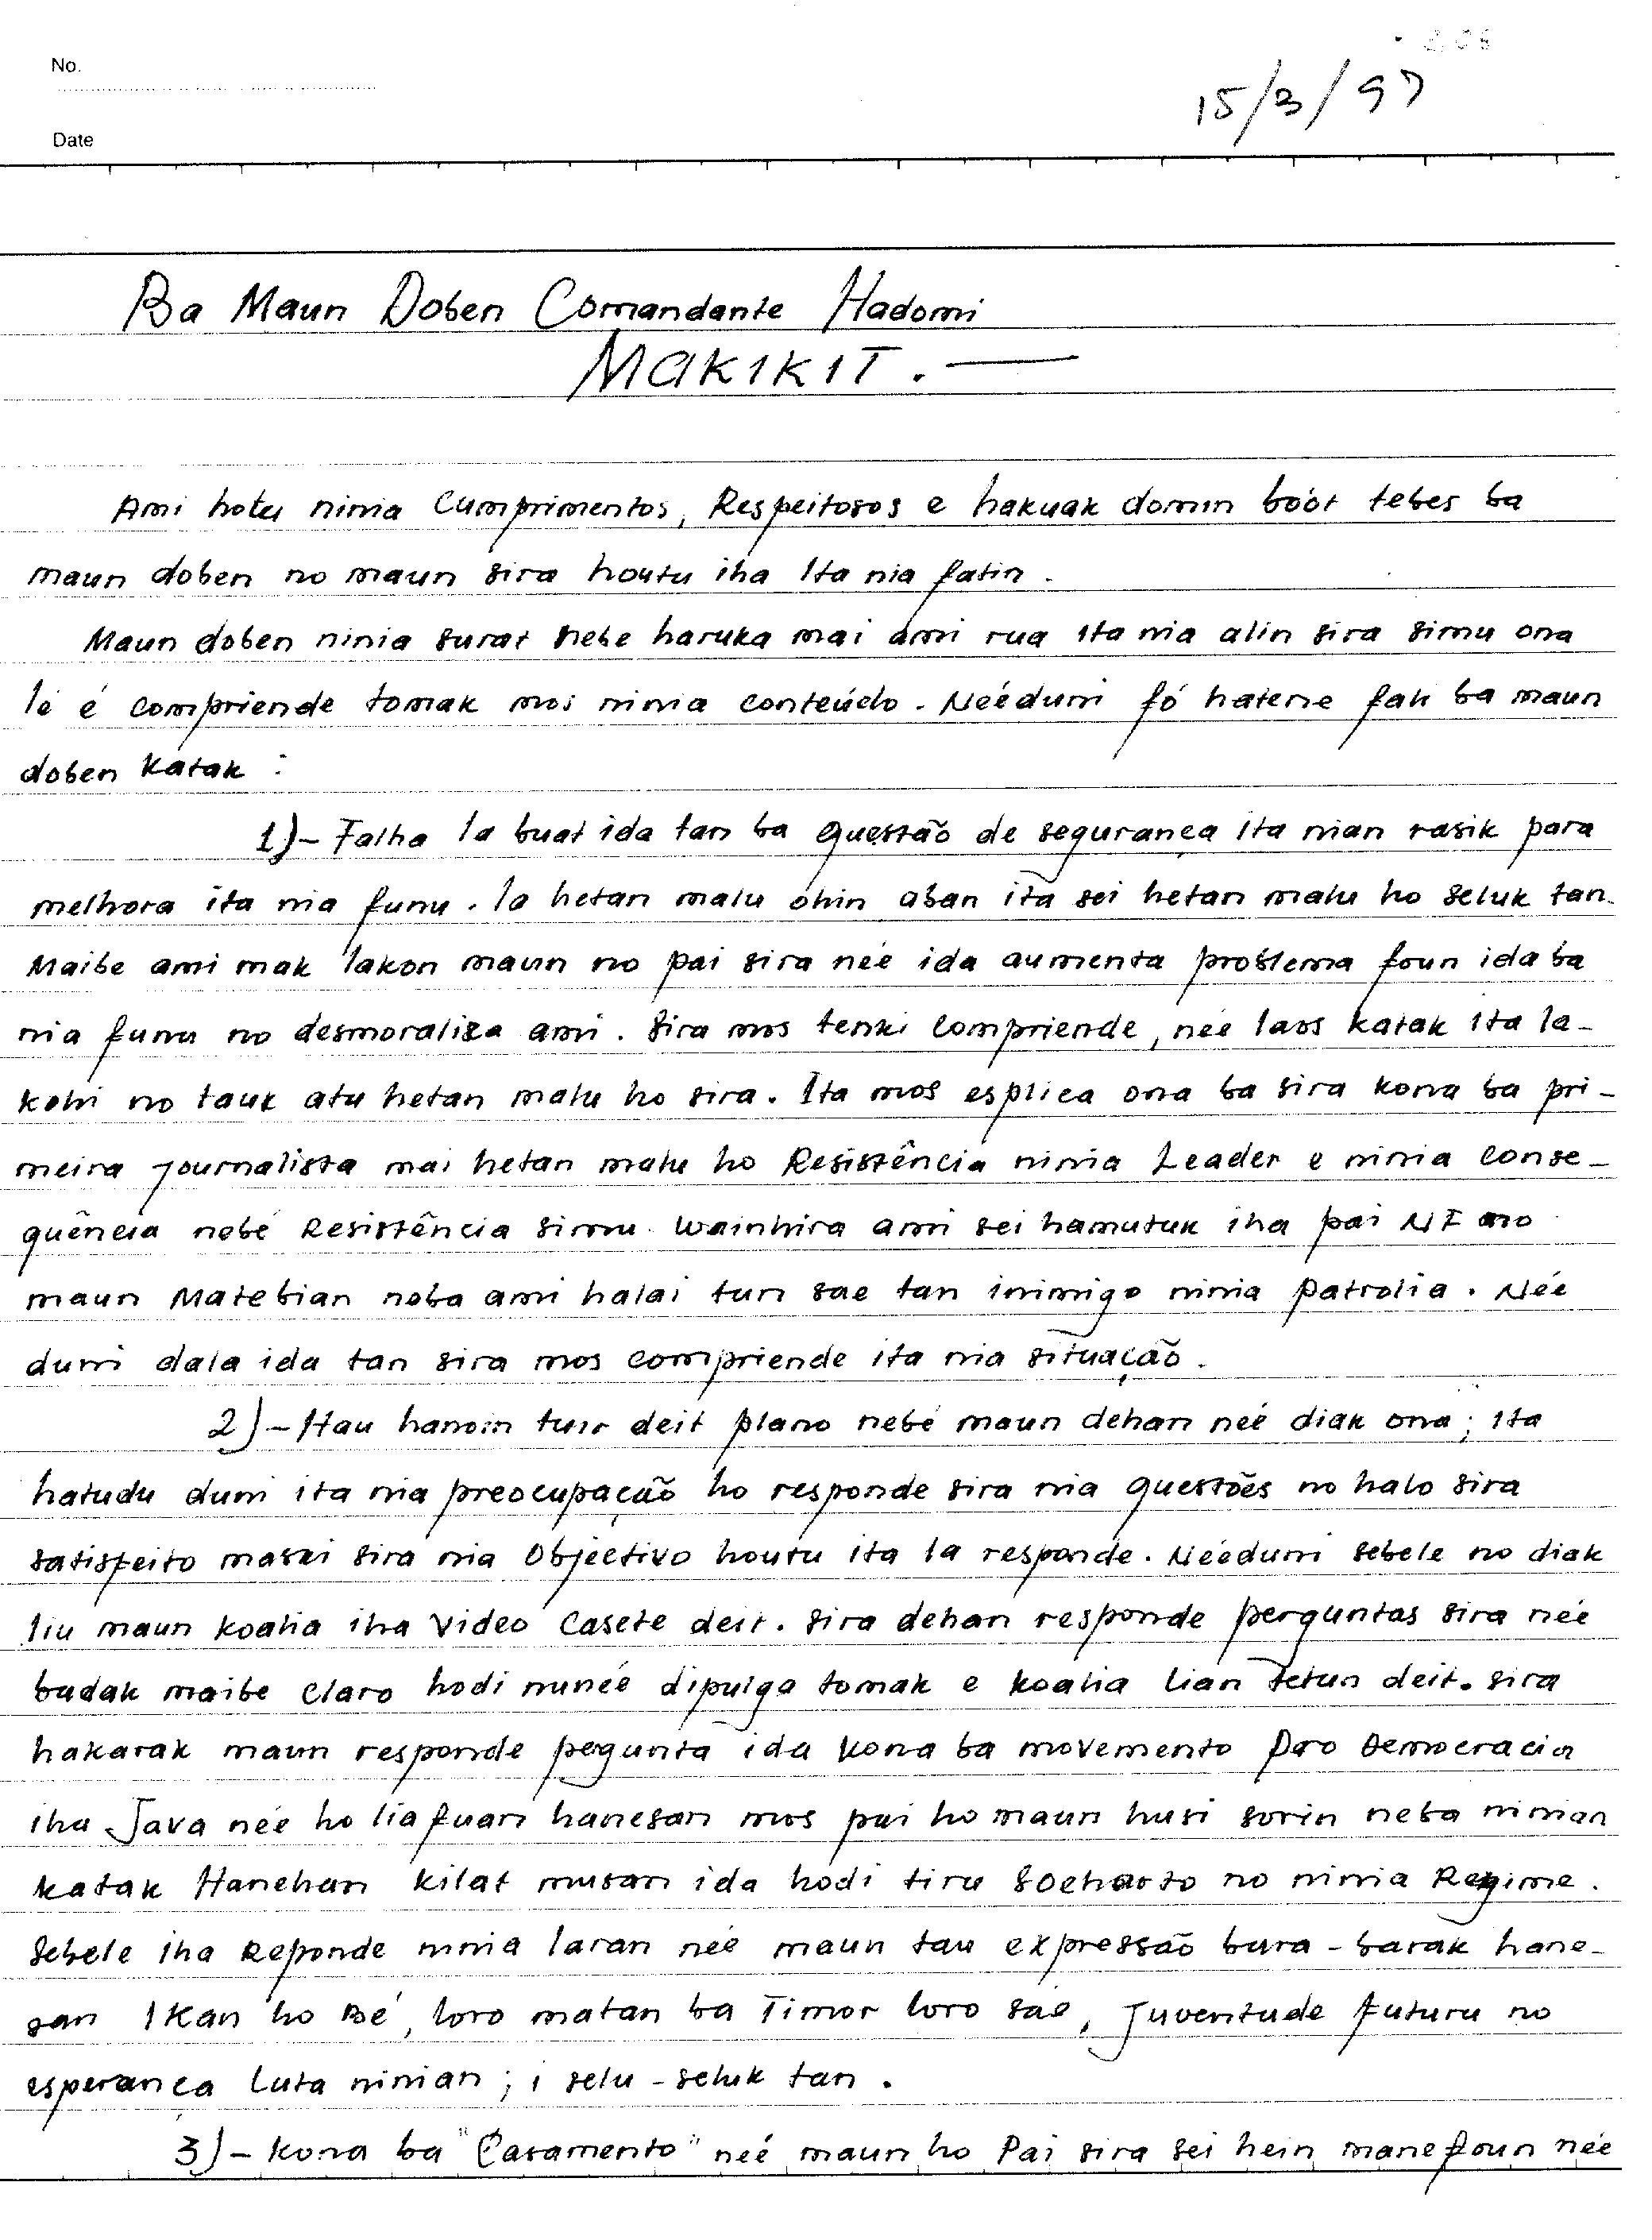 No.
15/3/97
Date
Ba Maun Doben Comandante Hadomi
MAKIKIT. —
Ami hotu ninia Cumprimentos, Respeitosos e hakuak domin boót tebes ba
maun doben no maun sira houtu iha Ita nia fatin.
Maun doben ninia surat nebe haruka mai ami rua ita nia alin sira simu ona
lé é compriende tomak mos ninia conteúdo. Néeduni fó hatene fali ba maun
doben katak :
1)- Falha la buat ida tan ba questão de segurança ita nian rasik para
melhora ita nia funu. la hetan malu óhin aban ita sei hetan malu ho seluk tan.
Maibe ami mak lakon maun no pai sira neé ida aumenta problema foun ida ba
nia funu no desmoraliza ami. Sira mos tenki compriende, neé laos katak ita la-
kohi no tauk atu hetan malu ho sira. Ita mos esplica ona ba sira kona ba pri-
meira journalista mai hetan malu ho Resistência ninia Leader e ninia conse-
quência nebé Resistência simu. Wainhira ami sei hamutuk iha pai NI no
maun Matebian neba ami halai tun sae tan inimigo ninia patrolia. Neé
duni dala ida tan sira mos compriende ita nia situação.
2)- Hau hanoin tuir deit plano nebé maun dehan neé diak ona; ita
hatudu duni ita nia preocupação ho responde sira nia questões no halo sira
satisfeito maski sira nia Objectivo houtu ita la responde. Néeduni sebele no diak
liu maun koalia iha Video Casete deit. Sira dehan responde perguntas sira neé
badak maibe claro hodi nuneé dipulga tomak e koalia lian Tetun deit. Sira
hakarak maun responde pegunta ida kona ba movemento Pro Democracia
iha Java neé ho lia fuan hanesan mos pai ho maun husi sorin neba ninian
katak Hanehan kilat musan ida hodi tiru Soeharto no ninia Regime.
Sebele iha Reponde ninia laran neé maun tau expressão bara-barak hane-
san Ikan ho Bé, loro matan ba Timor loro sáe, Juventude futuru no
esperança Luta ninian; i selu-seluk tan.
3)- Kona ba "Casamento" neé maun ho Pai sira sei hein mane foun neé